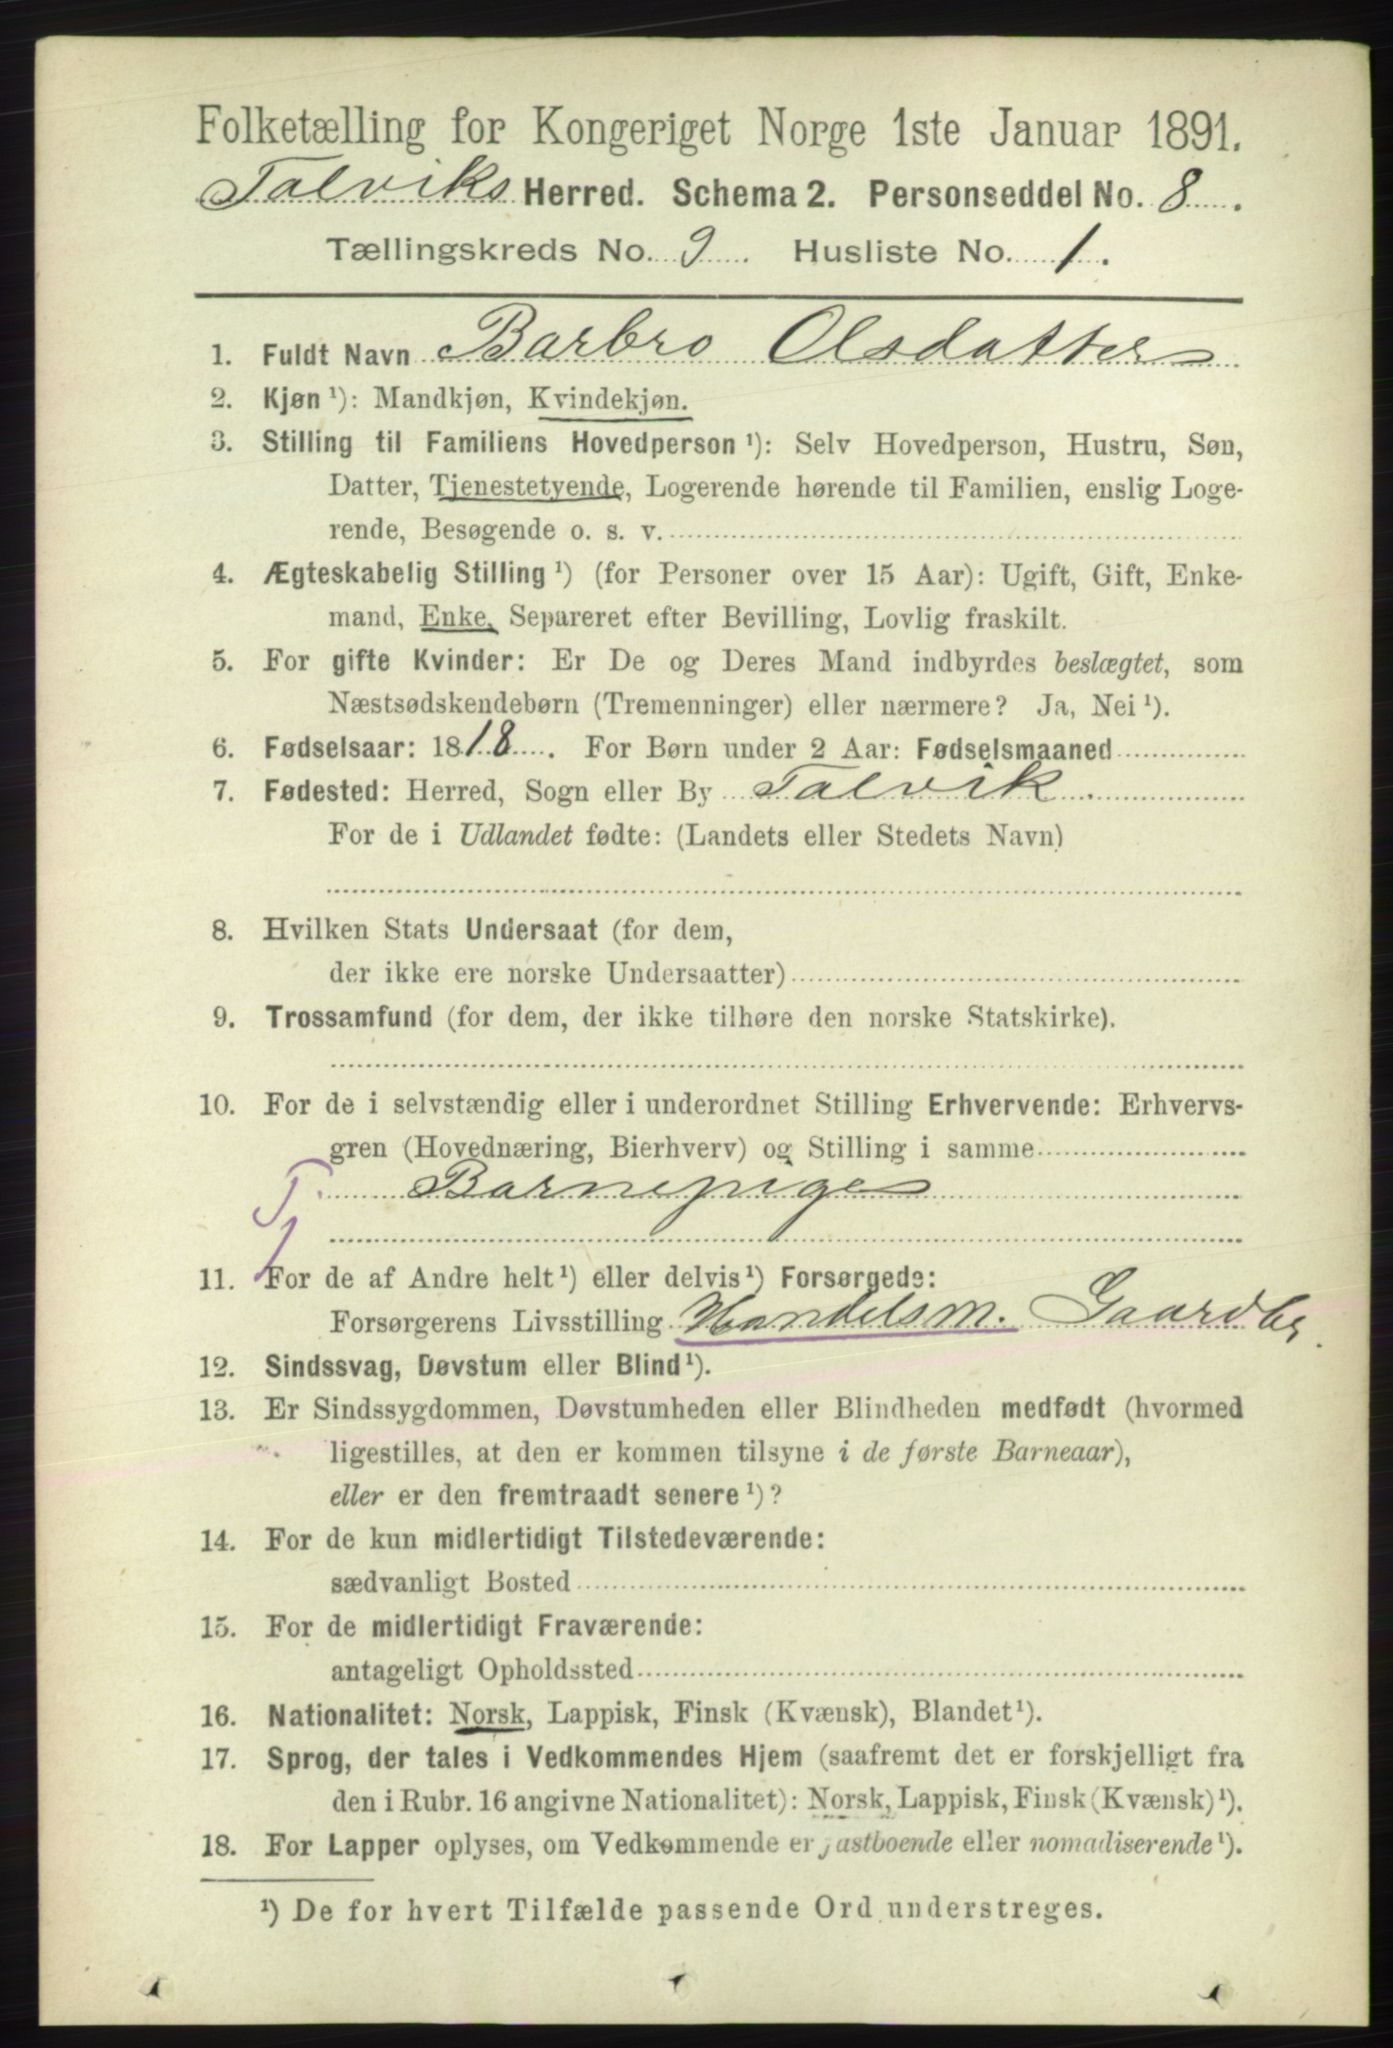 Folketælling for Kongeriget Norge 1ste Januar 1891.
Talviks Herred. Schema 2. Personseddel No. 8.
Tællingskreds No. 9. Husliste No. 1.
1. Fuldt Navn Barbro Olsdatter
2. Kjøn ¹): Mandkjøn, Kvindekjøn.
3. Stilling til Familiens Hovedperson ¹): Selv Hovedperson, Hustru, Søn,
Datter, Tjenestetyende, Logerende hørende til Familien, enslig Loge-
rende, Besøgende o. s. v.
4. Ægteskabelig Stilling ¹) (for Personer over 15 Aar): Ugift, Gift, Enke-
mand, Enke, Separeret efter Bevilling, Lovlig fraskilt.
5. For gifte Kvinder: Er De og Deres Mand indbyrdes beslægtet, som
Næstsødskendebørn (Tremenninger) eller nærmere? Ja, Nei ¹).
6. Fødselsaar: 1818. For Børn under 2 Aar: Fødselsmaaned
7. Fødested: Herred, Sogn eller By Talvik.
For de i Udlandet fødte: (Landets eller Stedets Navn)
8. Hvilken Stats Undersaat (for dem,
der ikke ere norske Undersaatter)
9. Trossamfund (for dem, der ikke tilhøre den norske Statskirke).
10. For de i selvstændig eller i underordnet Stilling Erhvervende: Erhvervs-
gren (Hovednæring, Bierhverv) og Stilling i samme
Tj Barnepige
11. For de af Andre helt ¹) eller delvis ¹) Forsørgede:
Forsørgerens Livsstilling Handelsm. Gaardbr.
12. Sindssvag, Døvstum eller Blind ¹).
13. Er Sindssygdommen, Døvstumheden eller Blindheden medfødt (hvormed
ligestilles, at den er kommen tilsyne i de første Barneaar),
eller er den fremtraadt senere ¹)?
14. For de kun midlertidigt Tilstedeværende:
sædvanligt Bosted
15. For de midlertidigt Fraværende:
antageligt Opholdssted
16. Nationalitet: Norsk, Lappisk, Finsk (Kvænsk), Blandet ¹).
17. Sprog, der tales i Vedkommendes Hjem (saafremt det er forskjelligt fra
den i Rubr. 16 angivne Nationalitet): Norsk, Lappisk, Finsk (Kvænsk) ¹).
18. For Lapper oplyses, om Vedkommende er fastboende eller nomadiserende ¹).
¹) De for hvert Tilfælde passende Ord understreges.